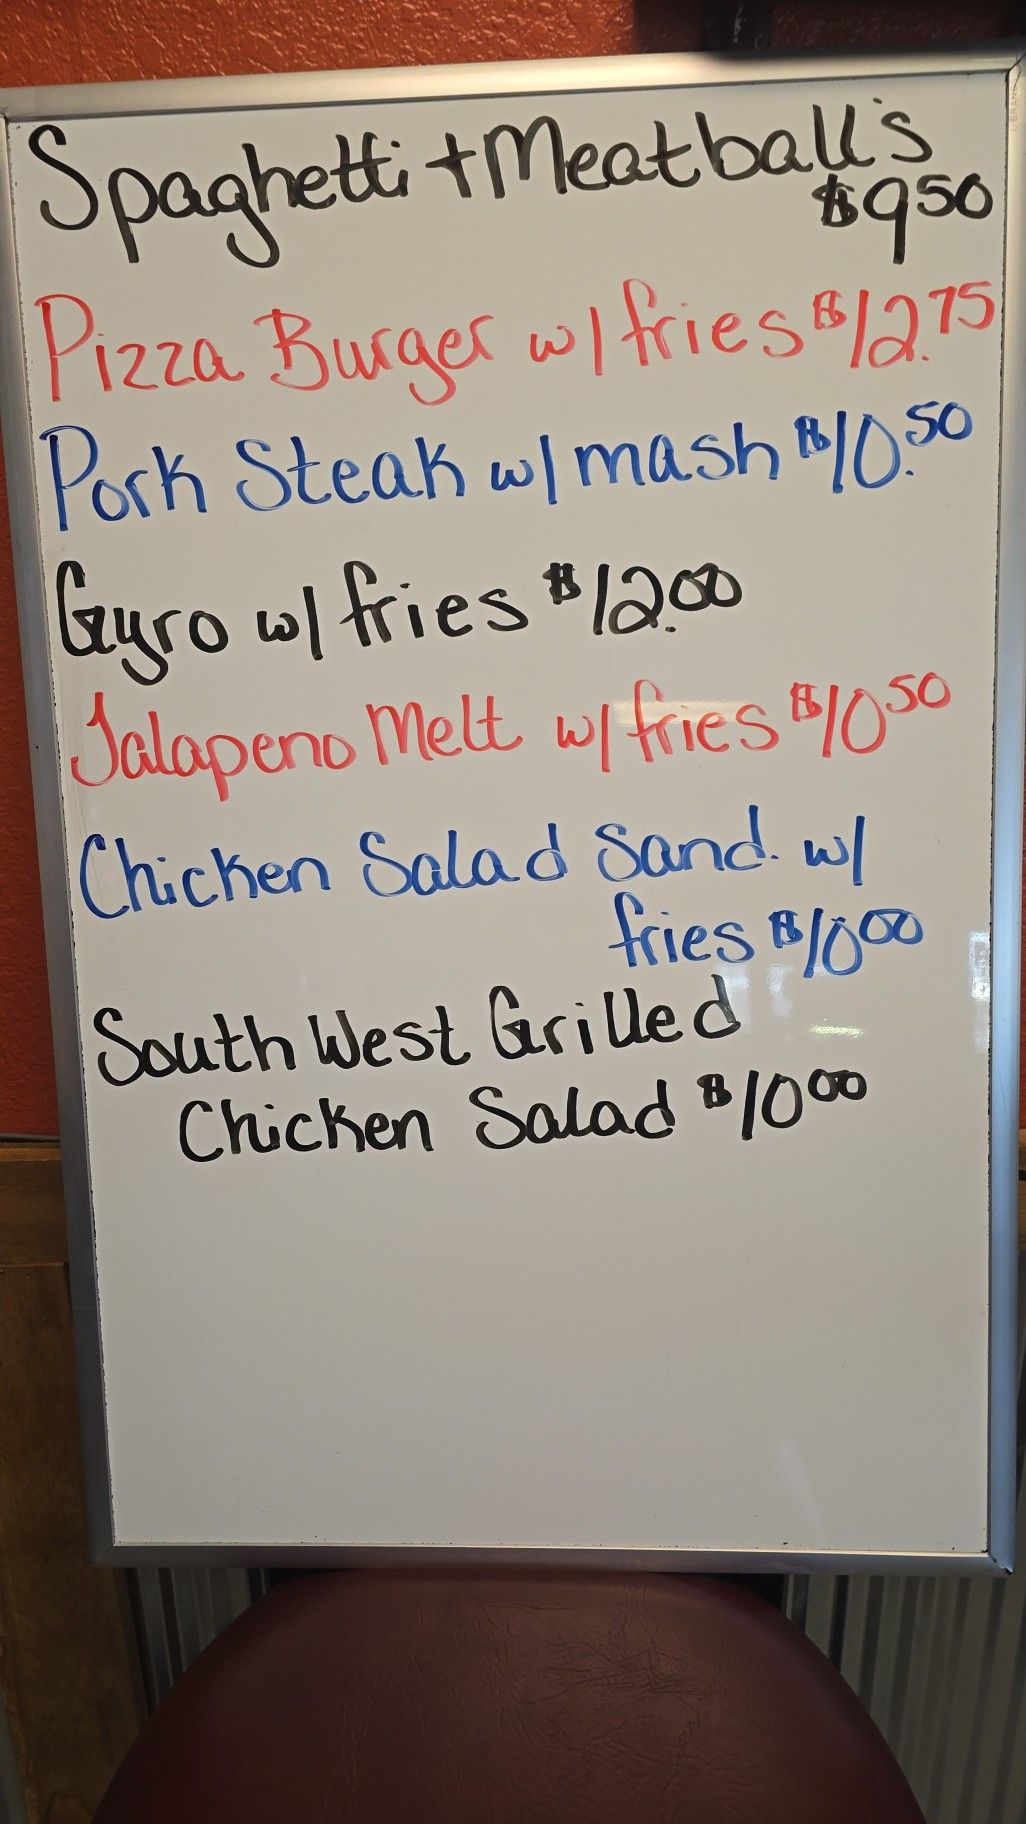 Spaghetti + Meatball's
$9 50
Pizza Burger w/ fries $12.75
Pork Steak w/ mash $10.50
Gyro w/ fries $12.00
Jalapeno Melt w/ fries $10 50
Chicken Salad Sand. w/
fries $10 00
South West Grilled
Chicken Salad $10 00